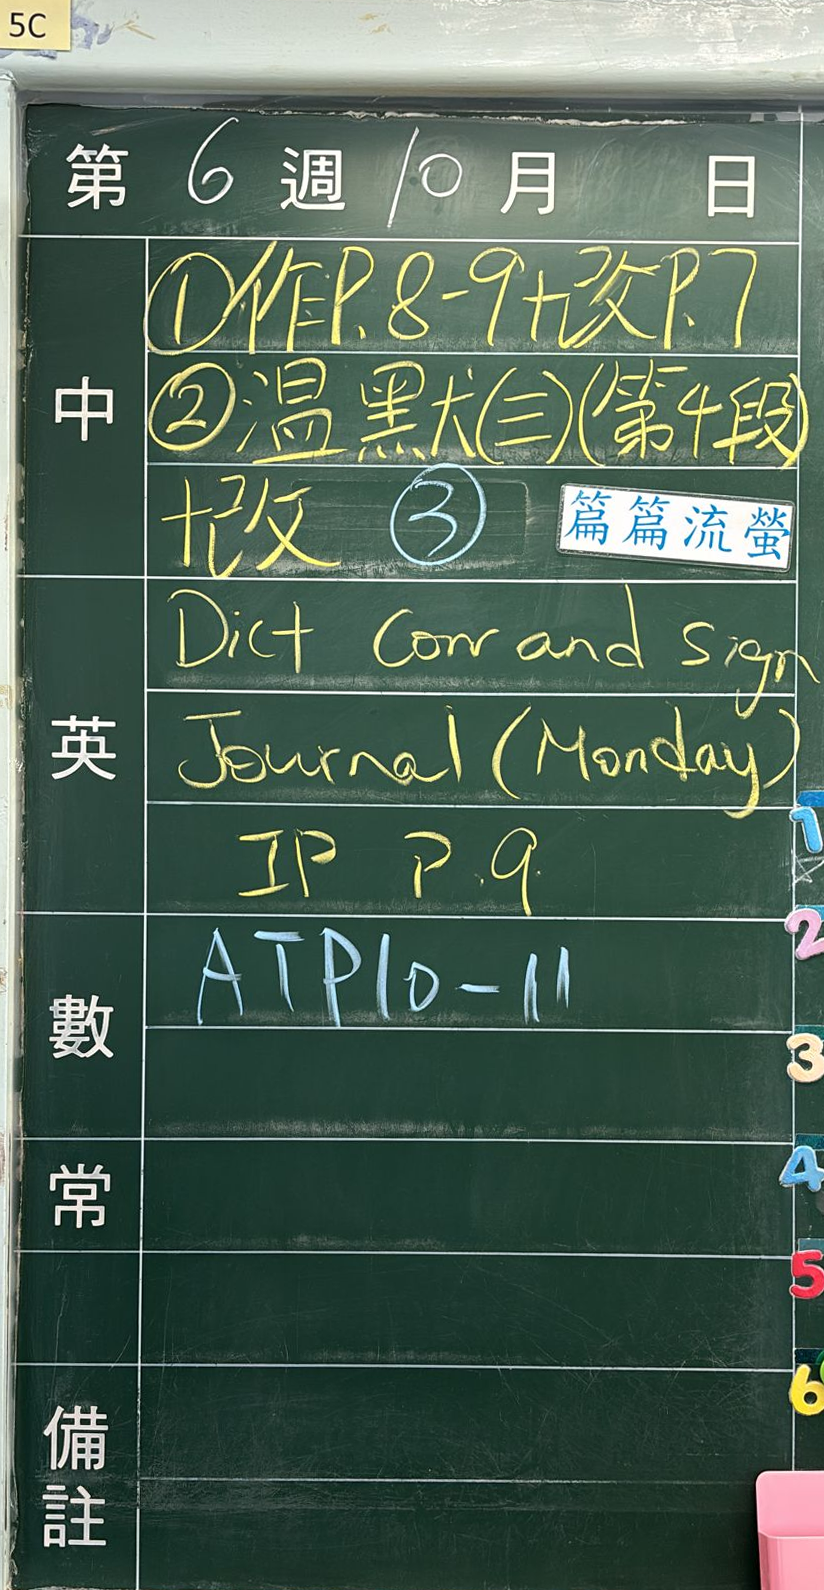 5C
第 6 週 10 月 日
中
①作P.8-9+改P.7
②溫默(三)(第4段)
+改 ③ 篇篇流螢
英
Dict Corr and sign
Journal (Monday)
IP P.9
數
ATP10-11
常
備註
1
2
3
4
5
6